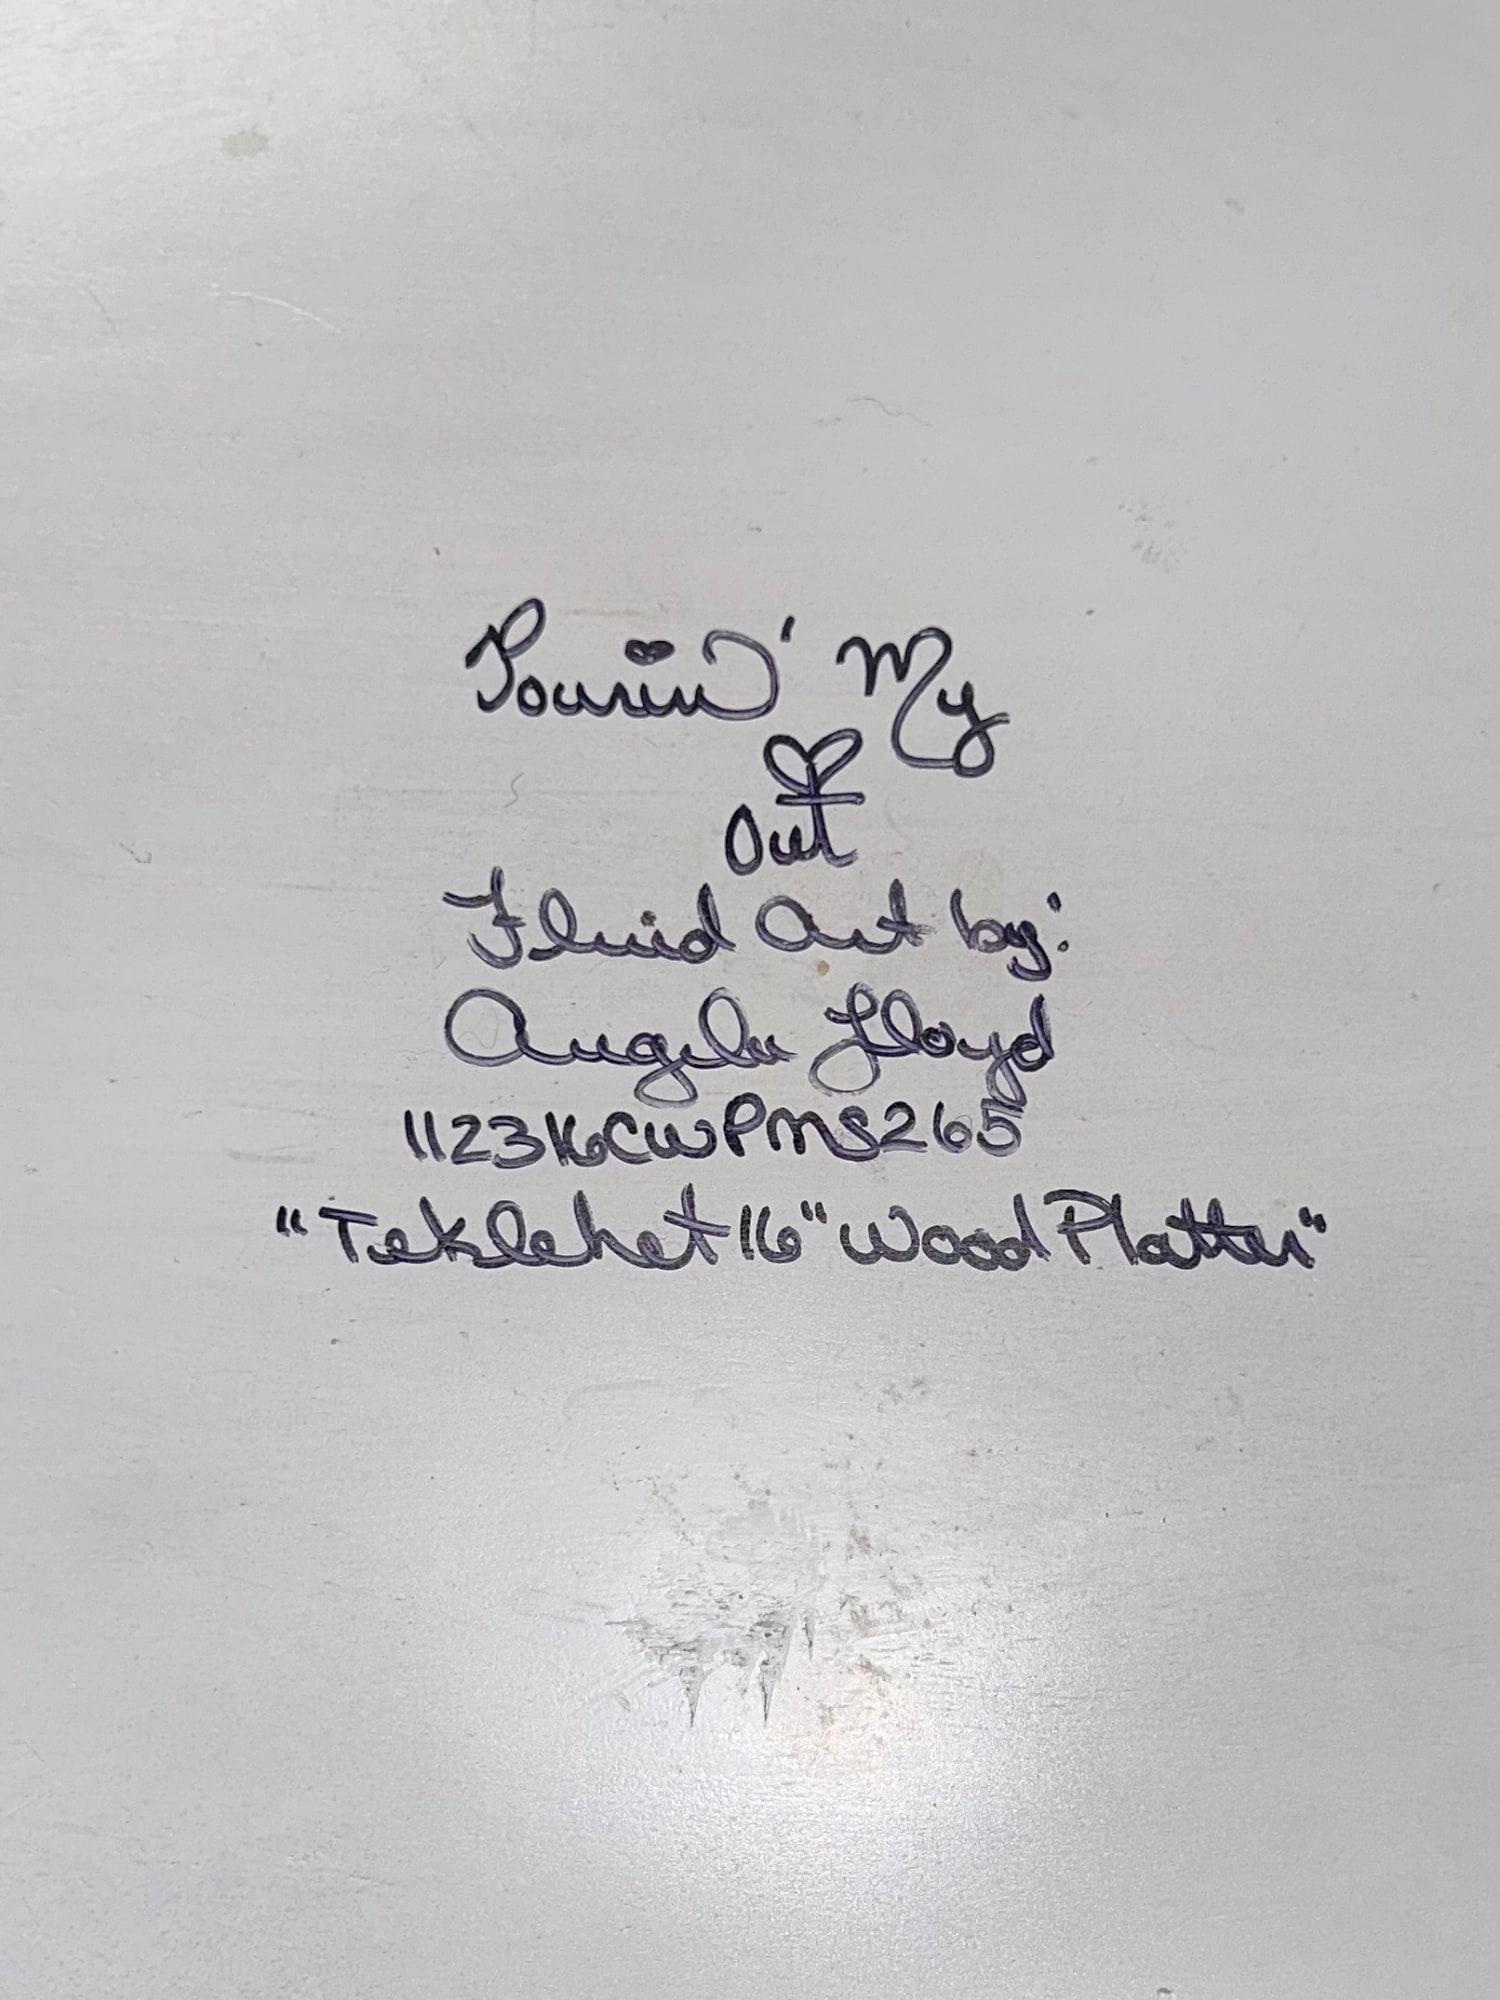 Pourin' My
♡
Out
Fluid Art by:
Angela Lloyd
112316CWPMS265
"Teklehet 16" Wood Platter"